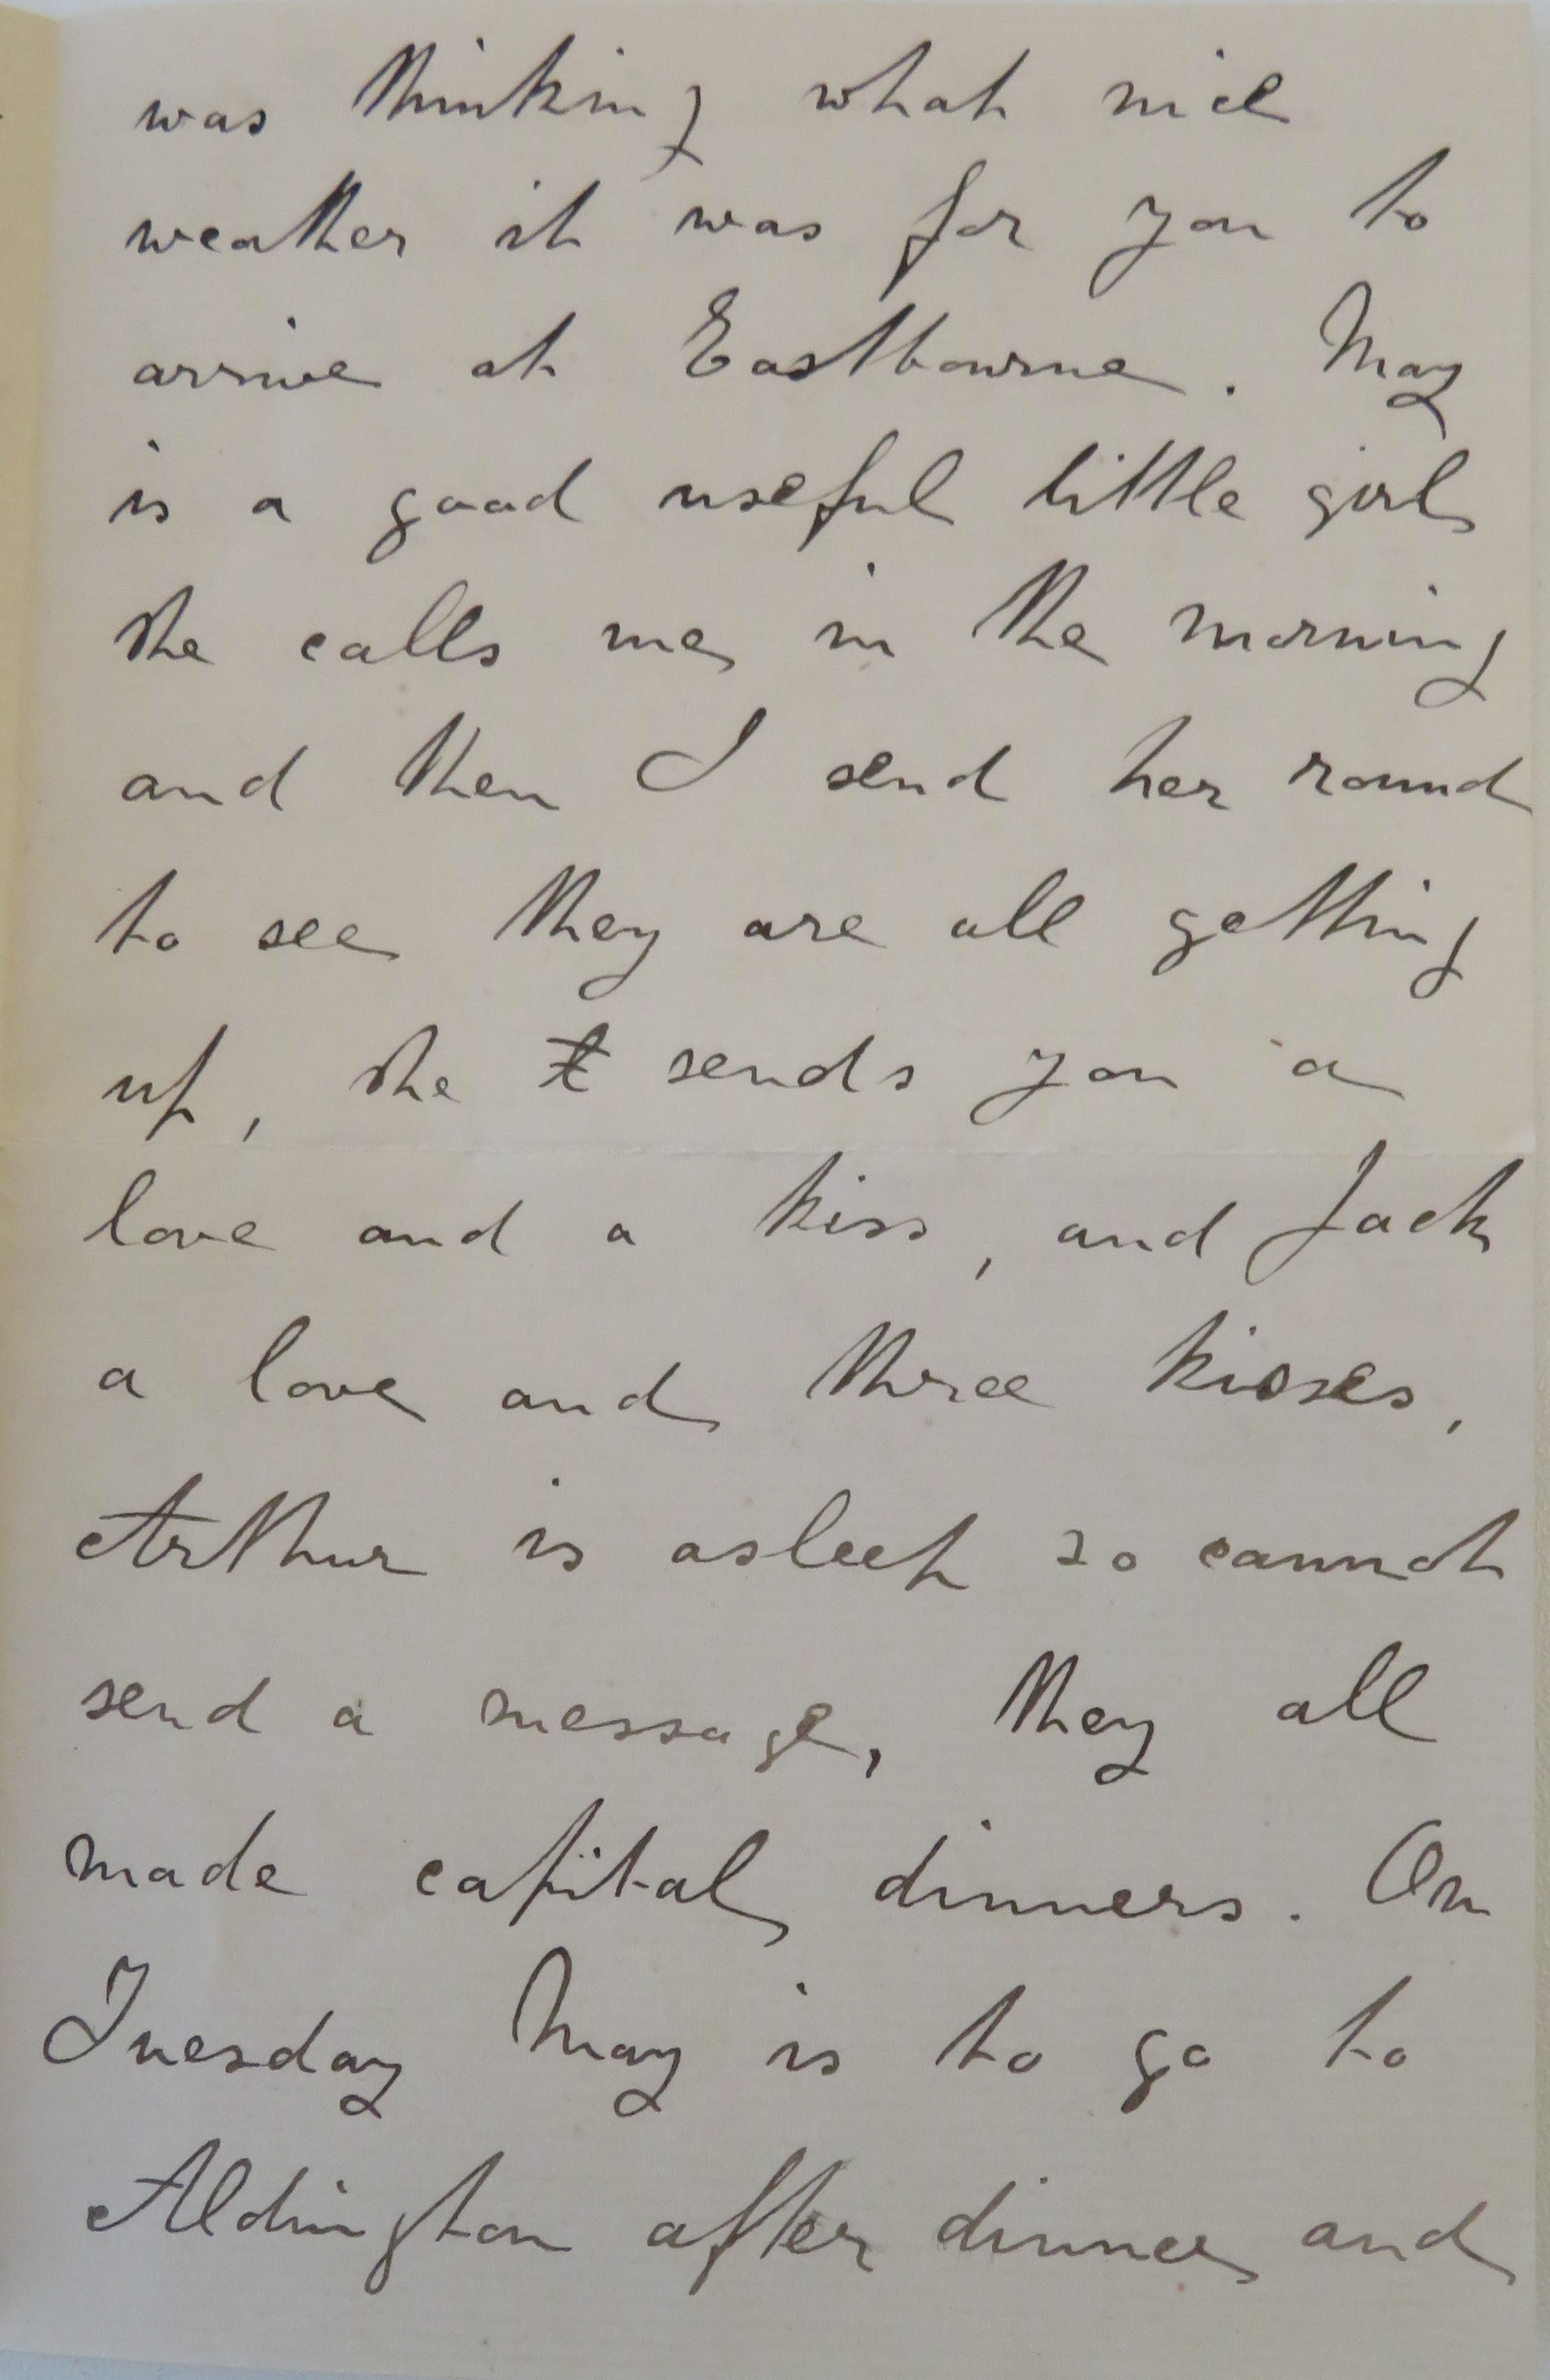 was thinking what nice
weather it was for you to
arrive at Eastbourne. May
is a good useful little girl
she calls me in the morning
and then I send her round
to see they are all getting
up, she t sends you a
love and a kiss, and Jack
a love and three kisses,
Arthur is asleep so cannot
send a message, they all
made capital dinners. On
Tuesday May is to go to
Aldington after dinner and